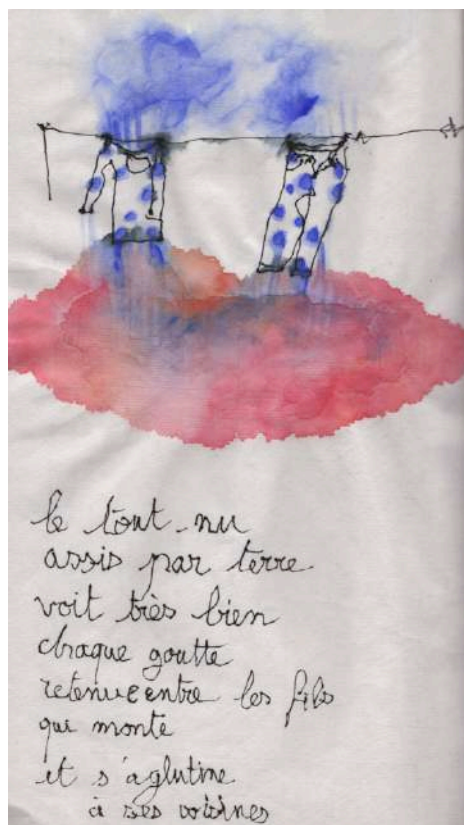 le tout nu
assis par terre
voit très bien
chaque goutte
retenue entre les fils
qui monte
et s'aglutine
à ses voisines